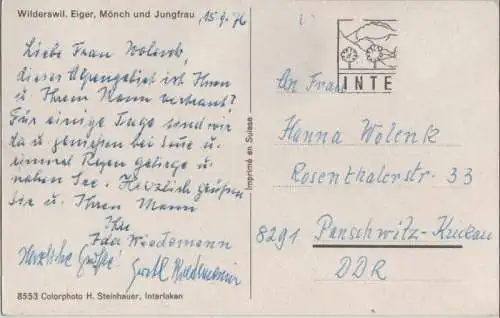 Wilderswil. Eiger, Mönch und Jungfrau
15.9.76
Liebe Frau Wolenk,
dieses Alpengebiet ist Ihnen
u. Ihrem Mann vertraut?
Für einige Tage sind wir
da u. genießen bei
einmal Regen Gebirge u.
nahen See. Herzlich grüßen
Sie u. Ihren Mann
Ihr
Ida Wiedemann
Herzliche Grüße! Wiedemann
8553 Colorphoto H. Steinhauer, Interlaken
Imprimé en Suisse
INTE
An Frau
Hanna Wolenk
Rosenthalerstr. 33
8291 Panschwitz-Kuckau
DDR